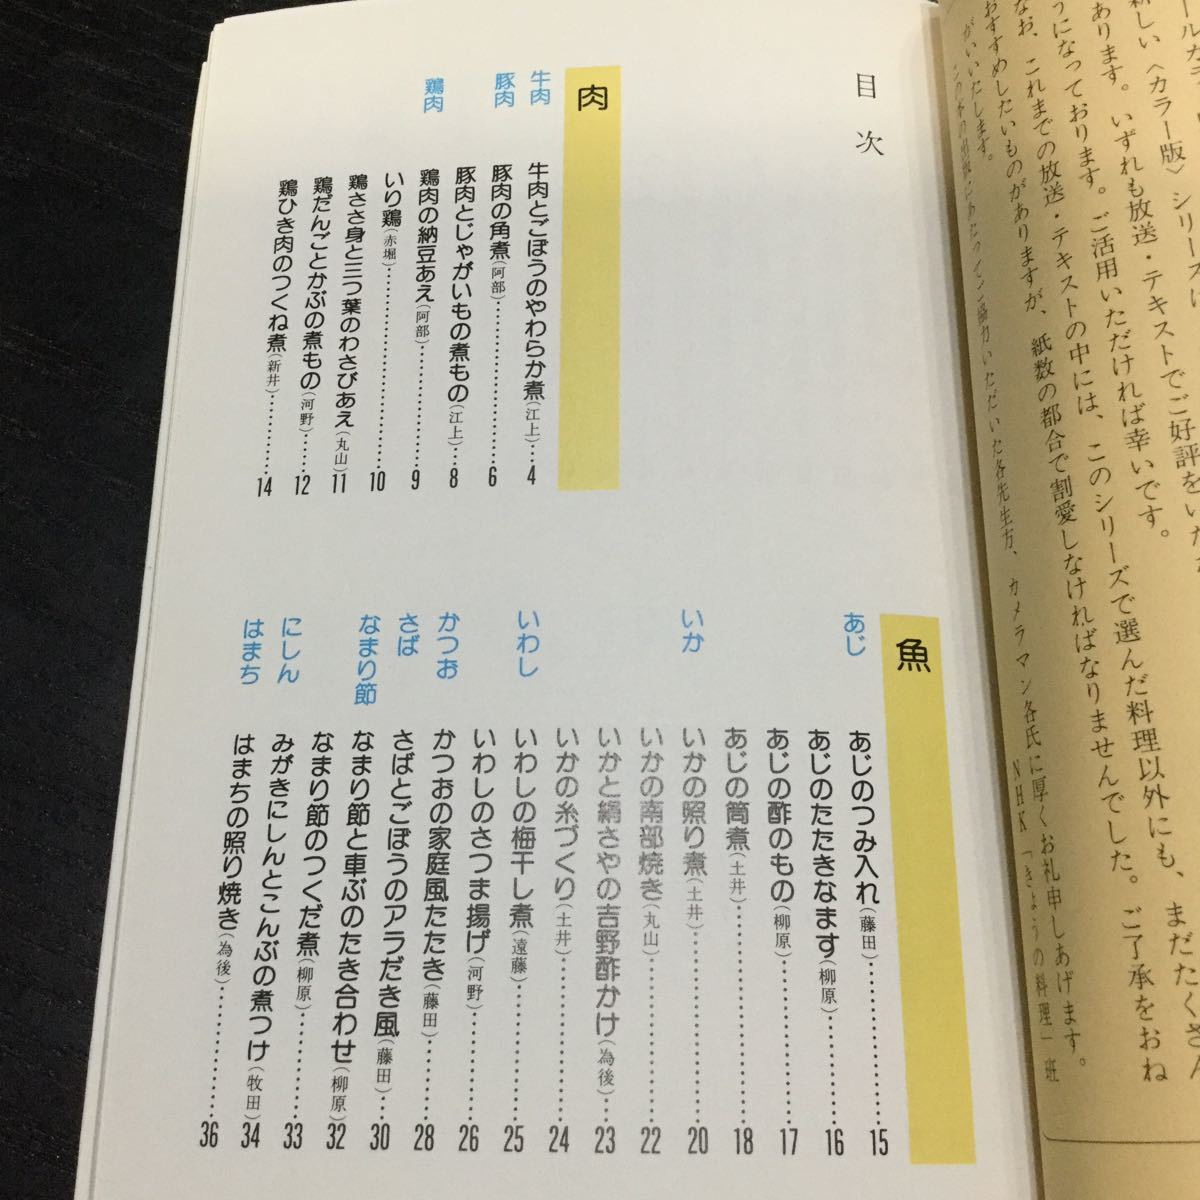 新しい〈カラー版〉シリーズは
あります。いずれも放送・テキストでご好評をいた
うになっております。ご活用いただければ幸いです。
なお、これまでの放送・テキストの中には、このシリーズで選んだ料理以外にも、まだたくさん
おすすめしたいものがありますが、紙数の都合で割愛しなければなりませんでした。ご了承をおね
がいいたします。
この本の出版にあたってご協力いただいた各先生方、カメラマン各氏に厚くお礼申しあげます。
NHK「きょうの料理」班
目次
肉
牛肉
牛肉とごぼうのやわらか煮(江上)……4
豚肉
豚肉の角煮(阿部)……6
豚肉とじゃがいもの煮もの(江上)……8
鶏肉
鶏肉の納豆あえ(阿部)……9
いり鶏(赤堀)……10
鶏ささ身と三つ葉のわさびあえ(丸山)……11
鶏だんごとかぶの煮もの(河野)……12
鶏ひき肉のつくね煮(新井)……14
魚
あじ
あじのつみ入れ(藤田)……15
あじのたたきなます(柳原)……16
あじの酢のもの(柳原)……17
あじの筒煮(土井)……18
いか
いかの照り煮(土井)……20
いかの南部焼き(丸山)……22
いかと絹さやの吉野酢かけ(為後)……23
いかの糸づくり(土井)……24
いわし
いわしの梅干し煮(遠藤)……25
いわしのさつま揚げ(河野)……26
かつお
かつおの家庭風たたき(藤田)……28
さば
さばとごぼうのアラだき風(藤田)……30
なまり節
なまり節と車ぶのたき合わせ(柳原)……32
なまり節のつくだ煮(柳原)……33
にしん
みがきにしんとこんぶの煮つけ(牧田)……34
はまち
はまちの照り焼き(為後)……36